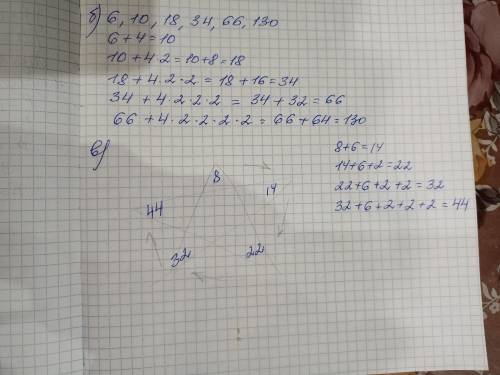 б) 6, 10, 18, 34, 66, 130
6 + 4 = 10
10 + 4 · 2 = 10 + 8 = 18
18 + 4 · 2 · 2 = 18 + 16 = 34
34 + 4 · 2 · 2 · 2 = 34 + 32 = 66
66 + 4 · 2 · 2 · 2 · 2 = 66 + 64 = 130
в)
8
14
44
32
22
8+6=14
14+6+2=22
22+6+2+2=32
32+6+2+2+2=44